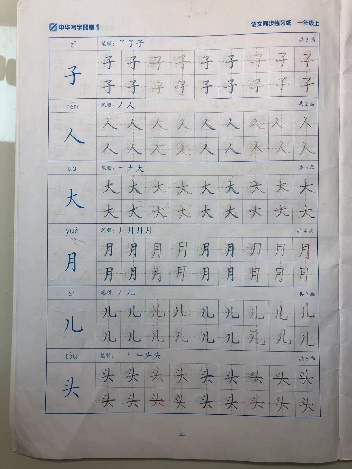 中华写字课堂 语文同步练习纸 一年级上
zǐ 笔顺: 共3画
子 子 子 子 子 子 子 子 子
子 子 子 子 子 子 子 子
rén 笔顺: ノ 人 共2画
人 人 人 人 人 人 人 人 人
人 人 人 人 人 人 人 人
dà 笔顺: 一 ナ 大
大 大 大 大 大 大 大 大 大
大 大 大 大 大 大 大 大
yuè 笔顺: 丿 月 月 月 共4画
月 月 月 月 月 月 月 月 月
月 月 月 月 月 月 月 月
笔顺: 丿 儿
儿 儿 儿 儿 儿 儿 儿 儿 儿
儿 儿 儿 儿 儿 儿 儿 儿
tóu 笔顺: 共5画
头 头 头 头 头 头 头 头 头
头 头 头 头 头 头 头 头